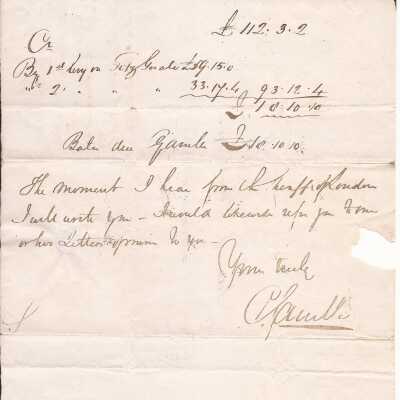 £ 112.3.2
Cr
By 1st Levy on Fitz Gerald £59.15.0
" 2 " " " 33.17.4 93.12.4
£ 18.10.10
Balce due Gamble £18.10.10.
The moment I hear from the Sheriff of London
I will write you – I would likewise refer you to
or his Letter of to you –
Yours truly
C Gamble